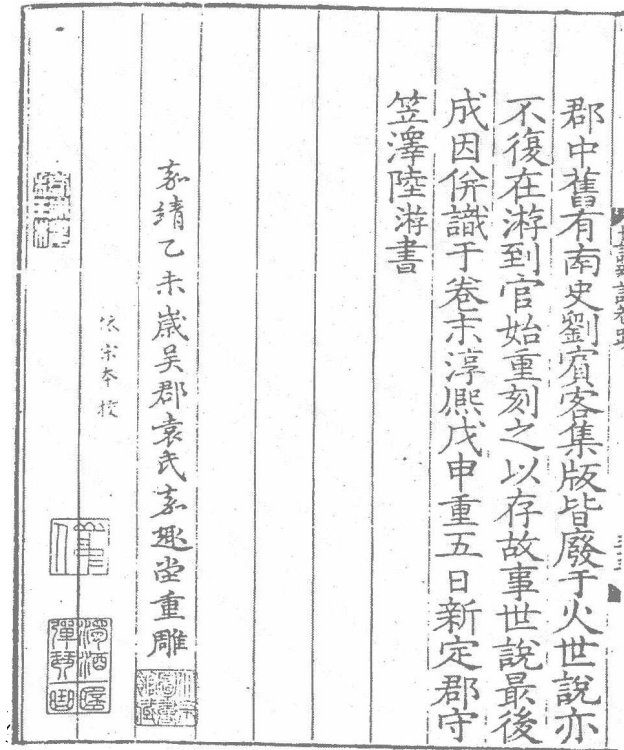 郡中舊有南史劉賓客集版皆廢于火世說亦
不復在游到官始重刻之以存故事世說最後
成因併識于卷末淳熙戊申重五日新定郡守
笠澤陸游書
嘉靖乙未歲吳郡袁氏嘉趣堂重雕
依宋本校